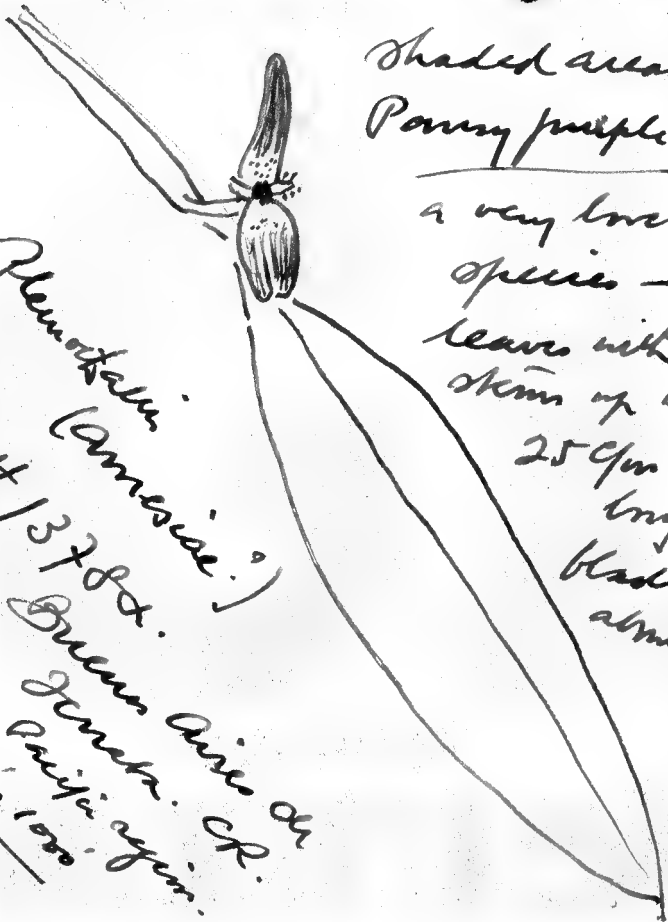 shaded area
Pansy purple
a very love
species —
leaves with
stems up
25 cm
long
blad
abou
Pleurothallis
(amesiae.)
H 1378x.
Buenos Aires de
CR.
Pacific region.
1000